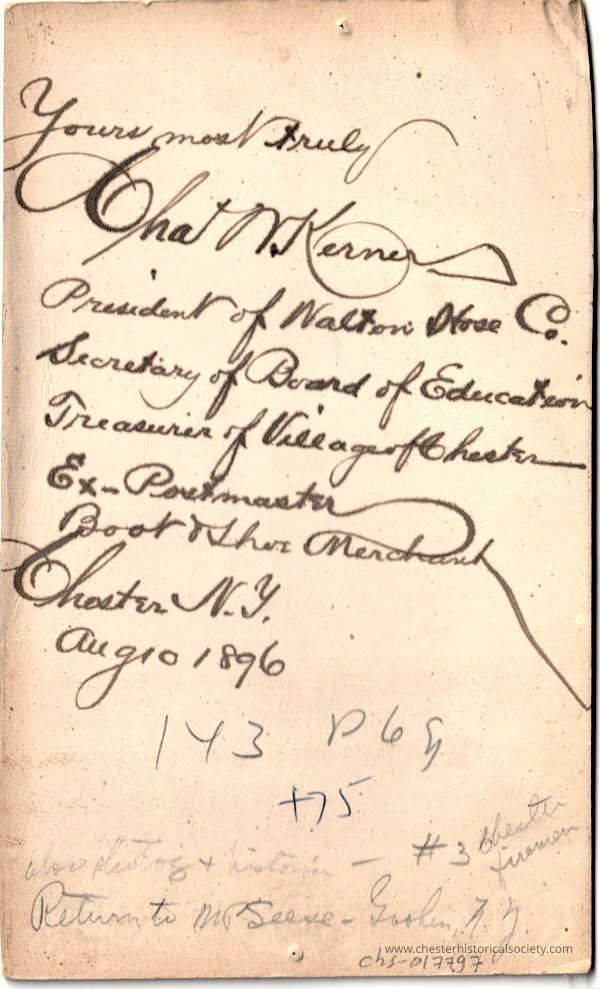 Yours most truly
Chas W. Kerner
President of Walton Hose Co.
Secretary of Board of Education
Treasurer of Village of Chester
Ex-Postmaster
Boot & Shoe Merchant
Chester N.Y.
Aug 10 1896
143 P 69
+75
+ historian — #3 Chester
firemen
Return to - Goshen, N.Y.
www.chesterhistoricalsociety.com
chs-017797